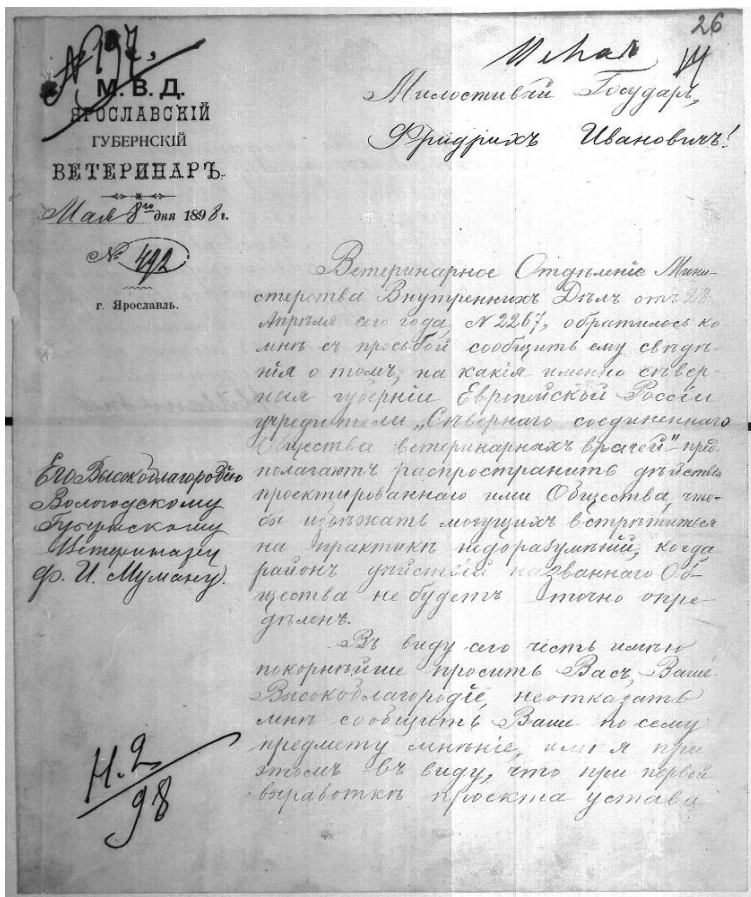 26
№ 197,
М. В. Д.
ЯРОСЛАВСКІЙ
ГУБЕРНСКІЙ
ВЕТЕРИНАРЪ.
Мая 8го дня 1898 г.
№ 492
г. Ярославль.
Милостивый Государь,
Фридрихъ Ивановичъ!
Ветеринарное Отдѣленіе Мини-
стерства Внутреннихъ Дѣлъ отъ 28
Апрѣля сего года, № 2267, обратилось ко
мнѣ съ просьбой сообщить ему свѣдѣ-
нія о томъ, на какія именно сѣвер-
ныя губерніи Европейской Россіи
учредители „Сѣвернаго соединеннаго
Общества ветеринарныхъ врачей" пред-
полагаютъ распространить дѣйствія
проектированнаго ими Общества, что-
бы избѣжать могущихъ встрѣтиться
на практикѣ недоразумѣній, когда
районъ дѣйствій названнаго Об-
щества не будетъ точно опре-
дѣленъ.
Въ виду сего честь имѣю
покорнѣйше просить Васъ, Ваше
Высокоблагородіе, неотказать
мнѣ сообщить Ваше по сему
предмету мнѣніе, имѣя при
этомъ въ виду, что при первой
выработкѣ проекта устава
Его Высокоблагородію
Вологодскому
Губернскому
Ветеринару
Ф. И. Муману.
Н. 2
98